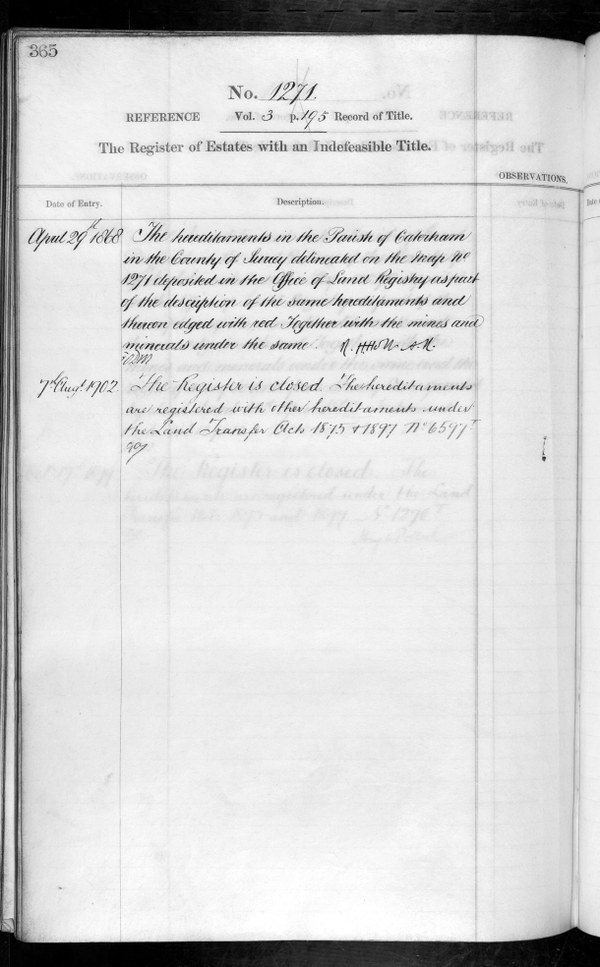 365
No. 1271
REFERENCE Vol. 3 p. 195 Record of Title.
The Register of Estates with an Indefeasible Title.
OBSERVATIONS.
Date of Entry. Description.
April 29th 1868 The hereditaments in the Parish of Caterham
in the County of Surrey delineated on the map No
1271 deposited in the Office of Land Registry as part
of the description of the same hereditaments and
thereon edged with red Together with the mines and
minerals under the same
7th Augt. 1902 The Register is closed. The hereditaments
are registered with other hereditaments under
the Land Transfer Acts 1875 & 1897 No 6597
The Register is closed. The
hereditaments are registered under the Land
Transfer Acts 1875 and 1897